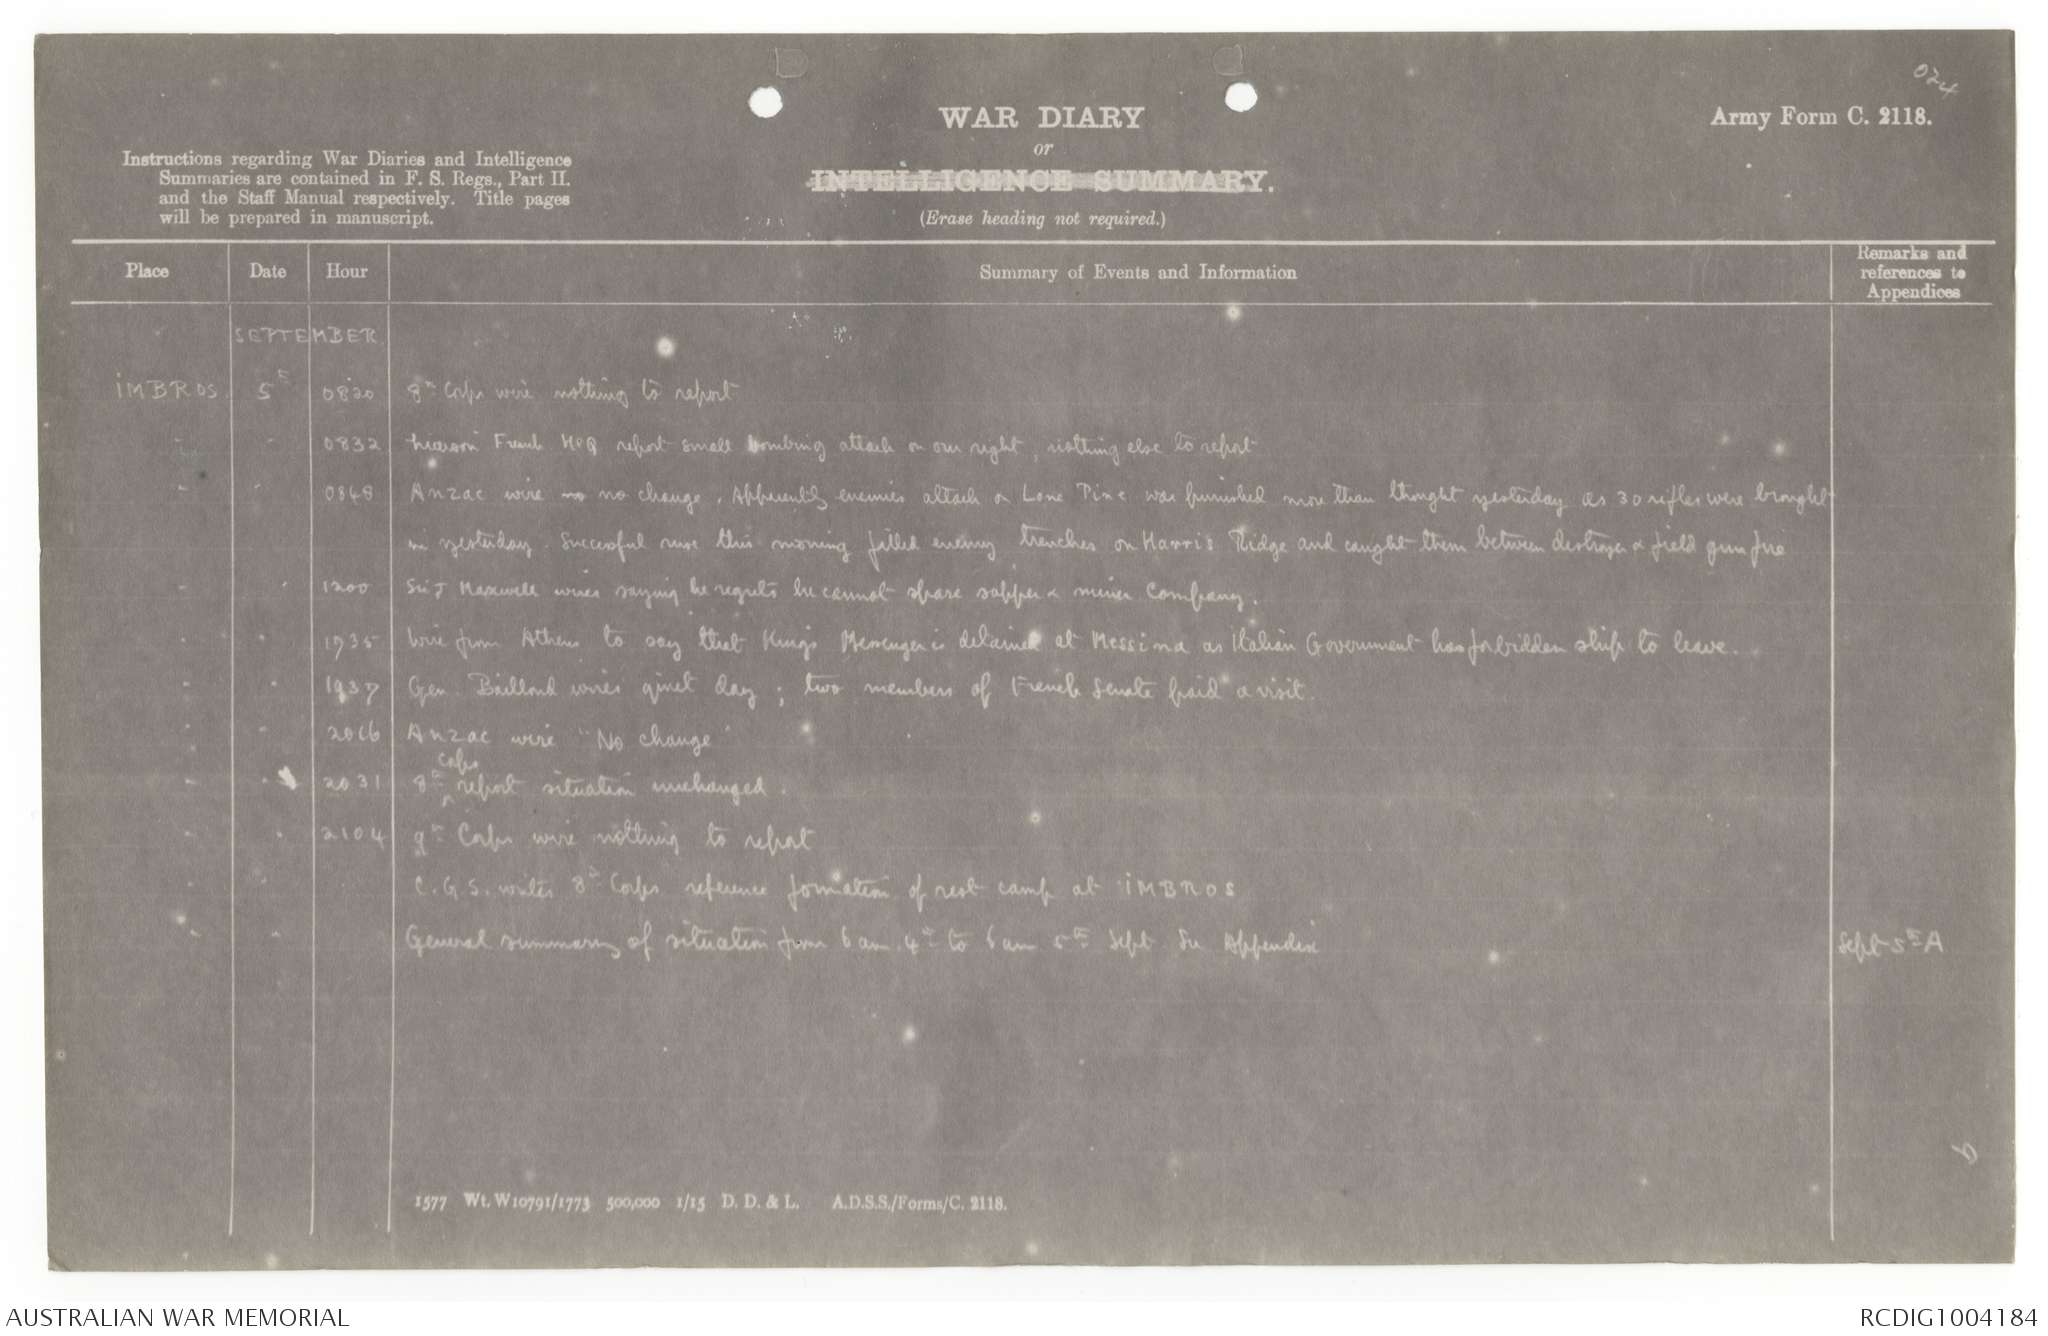 024
WAR DIARY
or
INTELLIGENCE SUMMARY.
(Erase heading not required.)
Army Form C. 2118.
Instructions regarding War Diaries and Intelligence
Summaries are contained in F. S. Regs., Part II.
and the Staff Manual respectively. Title pages
will be prepared in manuscript.
Place Date Hour Summary of Events and Information Remarks and references to Appendices
SEPTEMBER
IMBROS. 5th 0820 8th Corps wire nothing to report
" " 0832 Liaison French HQ report small bombing attack on our right, nothing else to report
" " 0848 Anzac wire no change. Apparently enemies attack on Lone Pine was punished more than thought yesterday as 30 rifles were brought
in yesterday. Successful ruse this morning filled enemy trenches on Harris Ridge and caught them between destroyer & field gun fire
" " 1200 Sir J Maxwell wires saying he regrets he cannot spare sapper & miner Company.
" " 1735 Wire from Athens to say that Kings Messenger is detained at Messina as Italian Government has forbidden ship to leave.
" " 1937 Gen. Bailloud wires quiet day; two members of French Senate paid a visit.
" " 2016 Anzac wire "No change"
" " 2031 8th Corps report situation unchanged.
" " 2104 9th Corps wire nothing to report
C.G.S. writes 8th Corps reference formation of rest camp at IMBROS
" " General summary of situation from 6 am 4th to 6 am 5th Sept. See Appendix Sept 5th A
1577 Wt. W10791/1773 500,000 1/15 D. D. & L. A.D.S.S./Forms/C. 2118.
AUSTRALIAN WAR MEMORIAL
RCDIG1004184